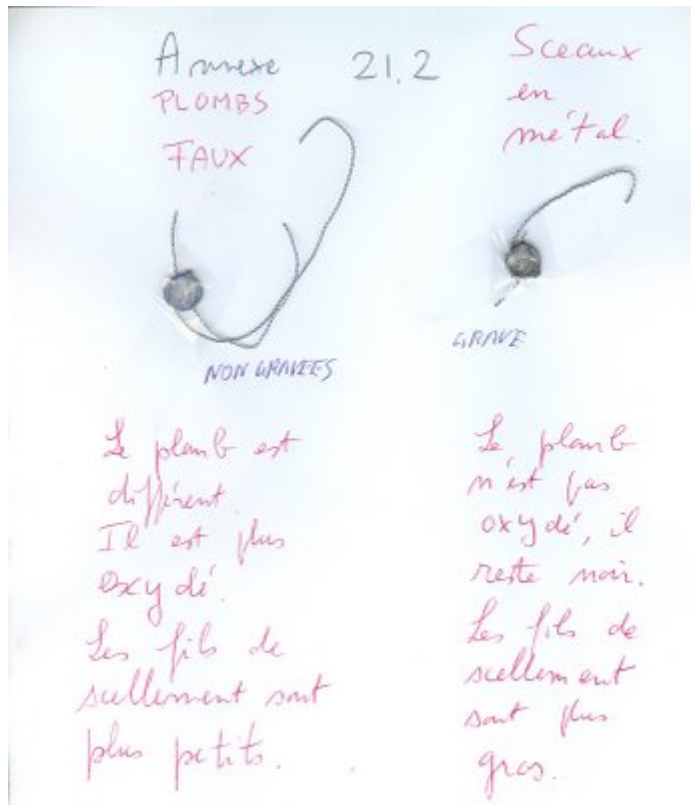 Annexe 21.2
PLOMBS
FAUX
NON GRAVEES
Le plomb est
différent.
Il est plus
oxydé.
Les fils de
scellement sont
plus petits.
Sceaux
en
métal.
GRAVE
Le plomb
n'est pas
oxydé, il
reste noir.
Les fils de
scellement
sont plus
gros.